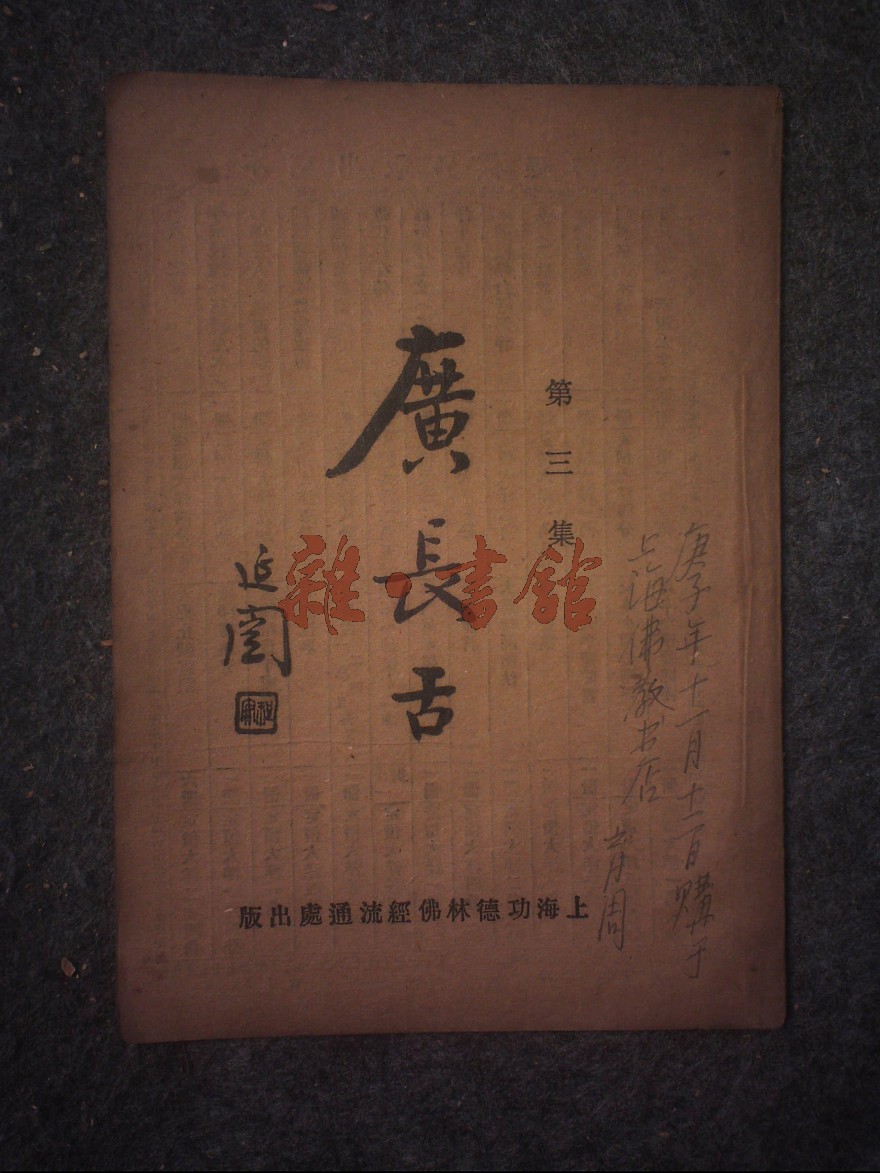 第三集
廣長舌
延闓
上海功德林佛經流通處出版
庚子年十一月十二日購于
上海佛教书店
雜·書館